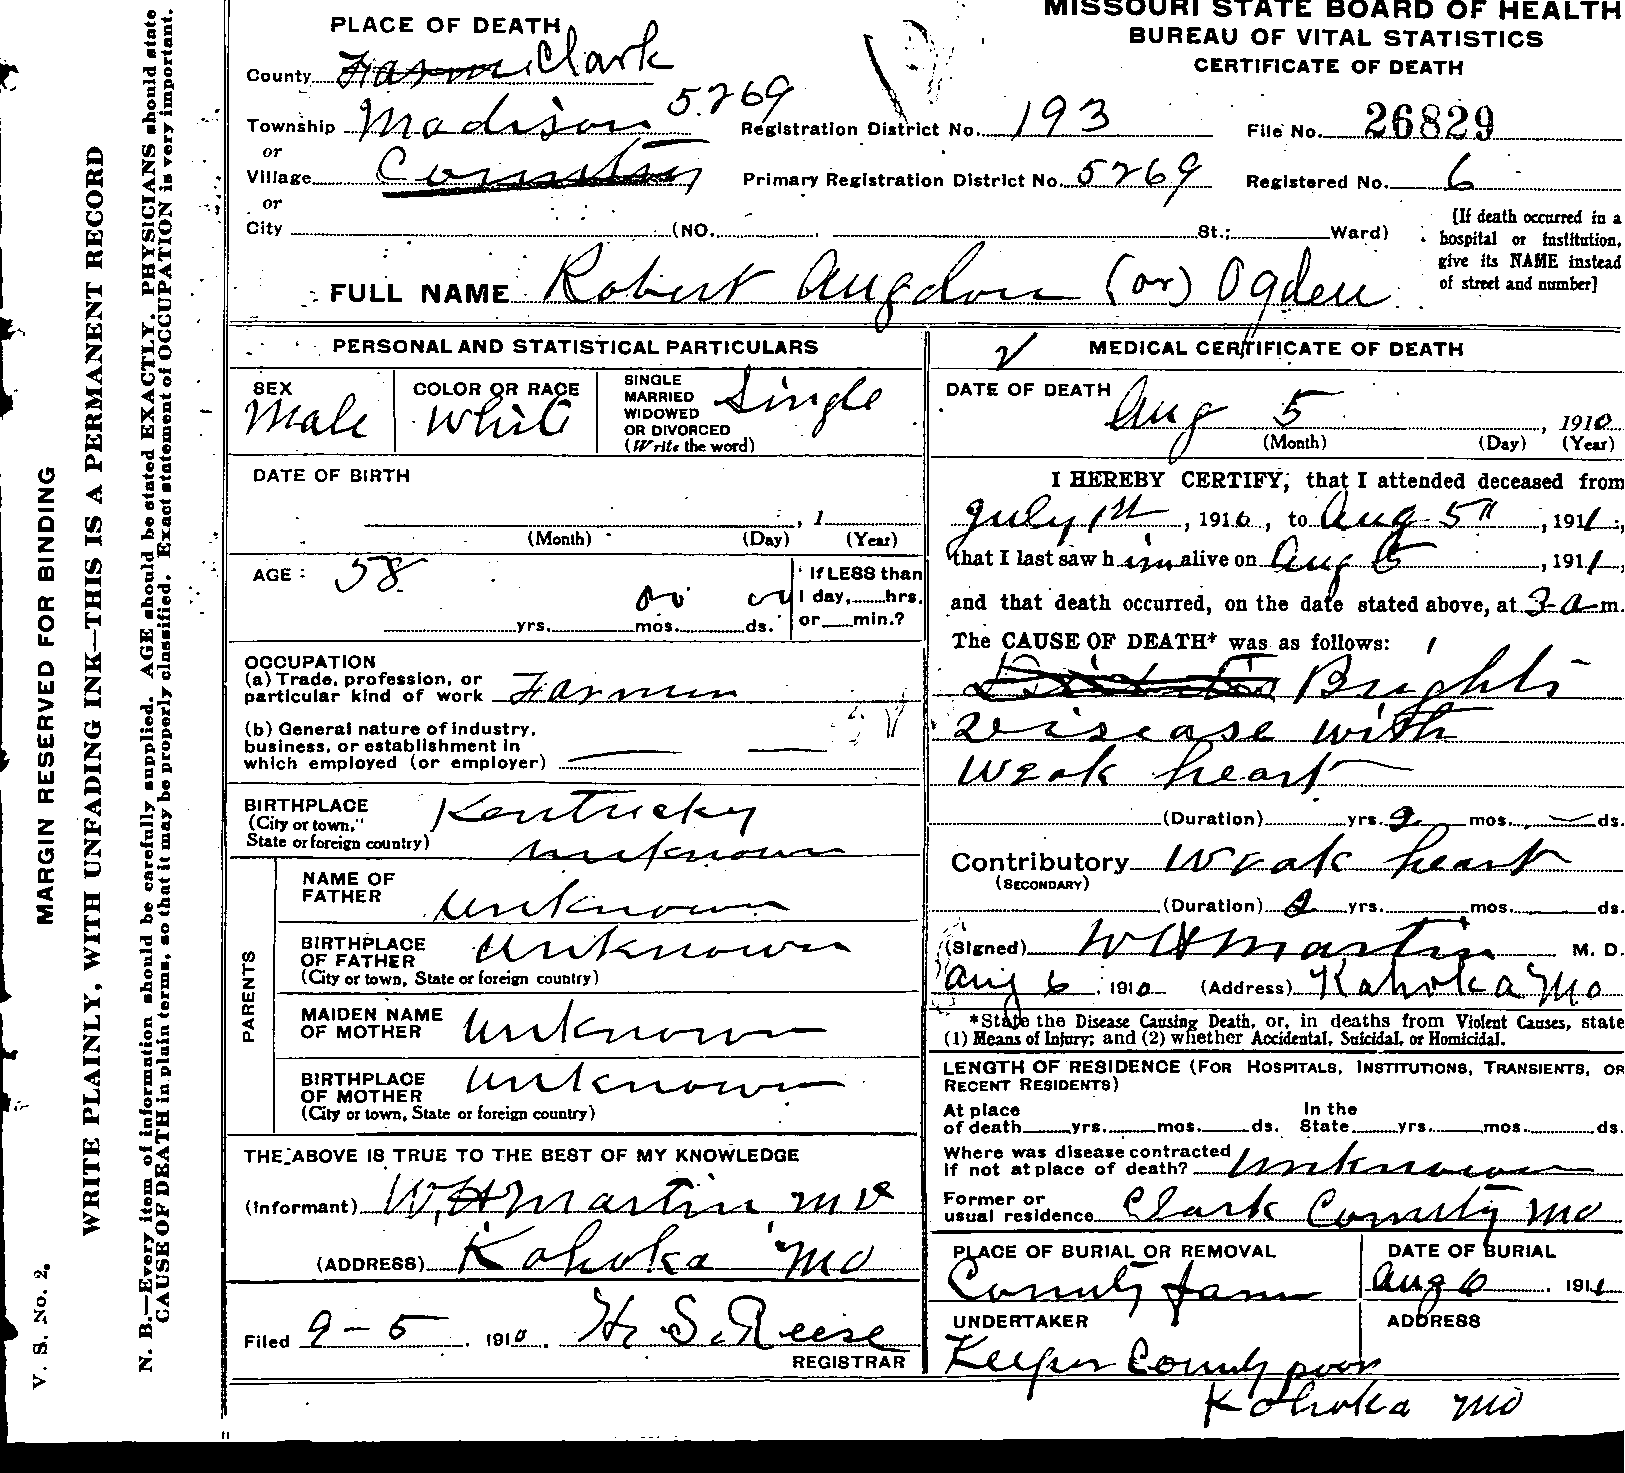 MISSOURI STATE BOARD OF HEALTH
BUREAU OF VITAL STATISTICS
CERTIFICATE OF DEATH
PLACE OF DEATH
County Clark
Township Madison 5269
or
Village County
or
City (NO. St.; Ward)
Registration District No. 193 File No. 26829
Primary Registration District No. 5269 Registered No. 6
[If death occurred in a
hospital or institution,
give its NAME instead
of street and number]
FULL NAME Robert Augdon (or) Ogden
PERSONAL AND STATISTICAL PARTICULARS
SEX
Male
COLOR OR RACE
White
SINGLE
MARRIED
WIDOWED
OR DIVORCED
(Write the word)
Single
DATE OF BIRTH
, 1
(Month) (Day) (Year)
AGE: 58
yrs. mos. ds.
If LESS than
1 day, hrs.
or min.?
OCCUPATION
(a) Trade, profession, or
particular kind of work Farmer
(b) General nature of industry,
business, or establishment in
which employed (or employer)
BIRTHPLACE
(City or town,
State or foreign country)
Kentucky
unknown
PARENTS
NAME OF
FATHER
unknown
BIRTHPLACE
OF FATHER
(City or town, State or foreign country)
unknown
MAIDEN NAME
OF MOTHER
unknown
BIRTHPLACE
OF MOTHER
(City or town, State or foreign country)
unknown
THE ABOVE IS TRUE TO THE BEST OF MY KNOWLEDGE
(Informant) W. H Martin MD
(ADDRESS) Kahoka Mo
Filed 9-5, 1910. H. S. Reese
REGISTRAR
MEDICAL CERTIFICATE OF DEATH
DATE OF DEATH
Aug 5, 1910
(Month) (Day) (Year)
I HEREBY CERTIFY, that I attended deceased from
July 1st, 1910, to Aug 5th, 191
that I last saw him alive on Aug 5, 191
and that death occurred, on the date stated above, at 3 a m.
The CAUSE OF DEATH* was as follows:
Brights
Disease with
weak heart
(Duration) yrs. 2 mos. ds.
Contributory weak heart
(SECONDARY)
(Duration) 2 yrs. mos. ds.
(Signed) W H Martin M. D.
Aug 6 1910 (Address) Kahoka Mo
*State the Disease Causing Death, or, in deaths from Violent Causes, state
(1) Means of Injury; and (2) whether Accidental, Suicidal, or Homicidal.
LENGTH OF RESIDENCE (FOR HOSPITALS, INSTITUTIONS, TRANSIENTS, OR
RECENT RESIDENTS)
At place
of death yrs. mos. ds.
In the
State yrs. mos. ds.
Where was disease contracted
if not at place of death? unknown
Former or
usual residence Clark County Mo
PLACE OF BURIAL OR REMOVAL
County farm
DATE OF BURIAL
Aug 6, 191
UNDERTAKER
Keeper County poor
ADDRESS
Kahoka Mo
MARGIN RESERVED FOR BINDING
WRITE PLAINLY, WITH UNFADING INK—THIS IS A PERMANENT RECORD
N. B.—Every item of information should be carefully supplied. AGE should be stated EXACTLY. PHYSICIANS should state
CAUSE OF DEATH in plain terms, so that it may be properly classified. Exact statement of OCCUPATION is very important.
V. S. No. 2.